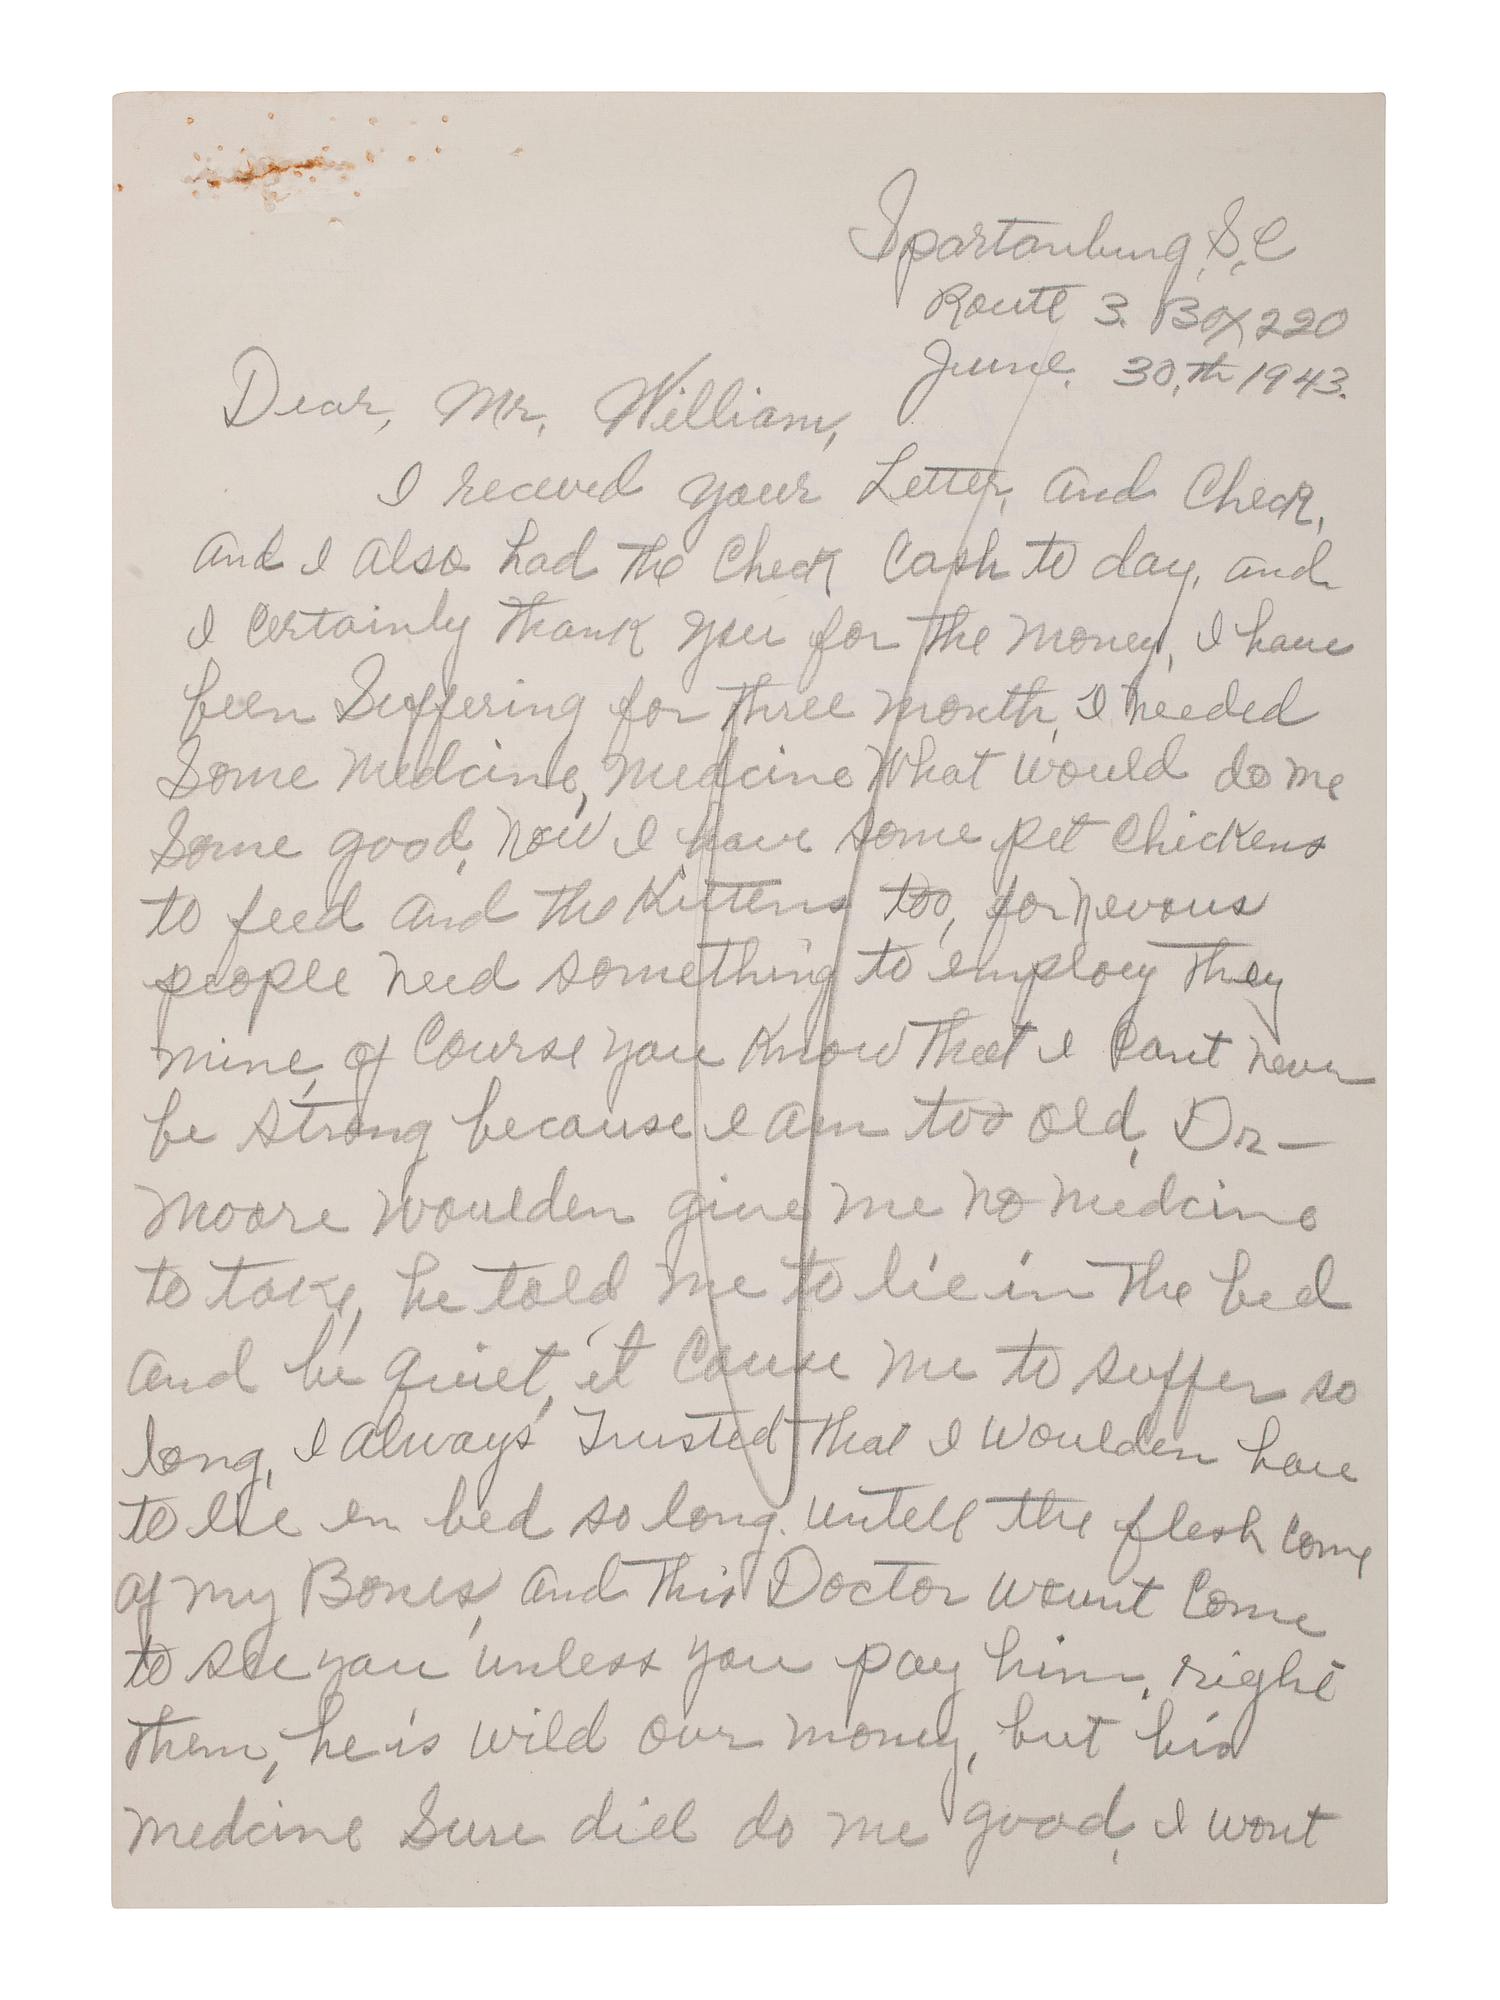 Spartanburg, S, C
Route 3. Box 220
June. 30,th 1943.
Dear, Mr. William,
I receved your Letter, and Check,
and I also had the Check Cash to day, and
I certainly thank you for the money, I have
been Suffering for three month, I needed
Some medcine, medcine What would do me
Some good, now I have some pet chickens
to feed and the Kittens too, for nevous
people need something to employ they
mine, of Course you Know that I Cant never
be strong because I am too old, Dr-
Moore woulden give me no medcine
to take, he told me to lie in the bed
and be quiet, it Cause me to suffer so
long, I always Trusted that I woulden have
to lie en bed so long. untell the flesh Come
of my Bones, and this Doctor wount Come
to see you unless you pay him, right
them, he is wild our money, but his
medcine Sure died do me good, I wont